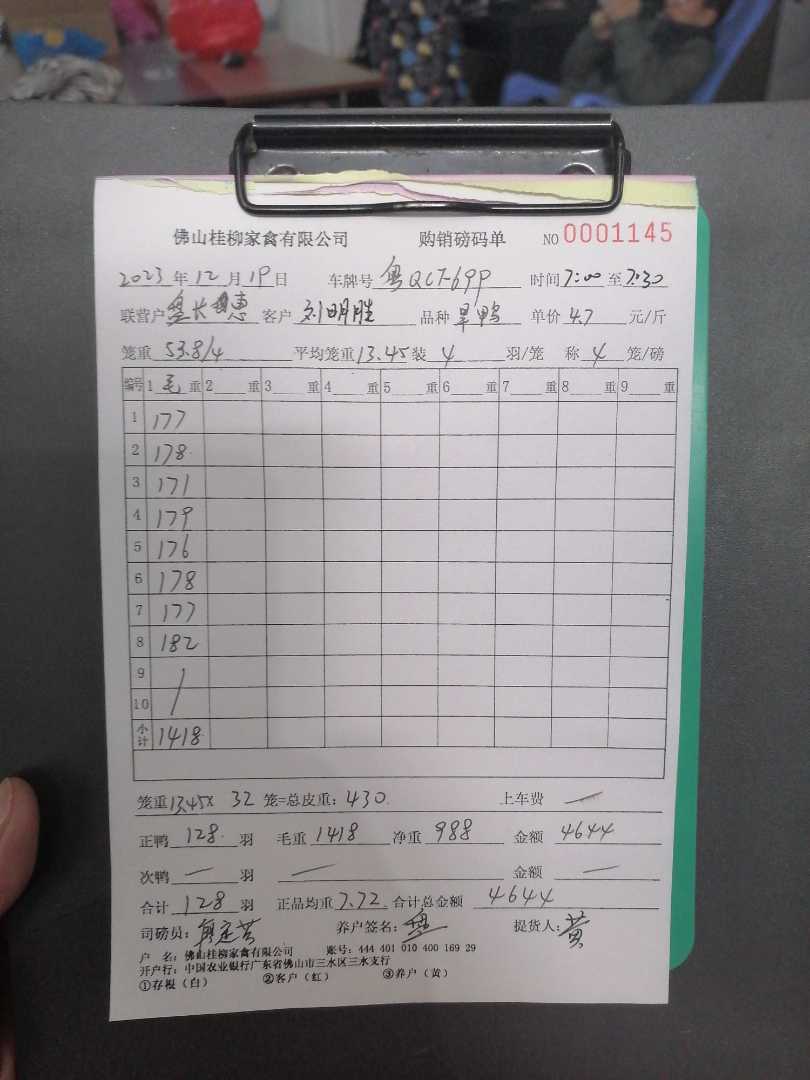 佛山桂柳家禽有限公司 购销磅码单 NO 0001145
2023年12月19日 车牌号 粤QCT-699 时间7:00至7:30
联营户 客户 刘明胜 品种 旱鸭 单价 4.7 元/斤
笼重 53.8/4 平均笼重13.45装 4 羽/笼 称 4 笼/磅
编号 1 毛 重 2 重 3 重 4 重 5 重 6 重 7 重 8 重 9 重
1 177
2 178
3 171
4 179
5 176
6 178
7 177
8 182
9 /
10
小计 1418
笼重13.45X 32 笼=总皮重:430 上车费 —
正鸭 128 羽 毛重 1418 净重 988 金额 4644
次鸭 — 羽 — 金额 —
合计 128 羽 正品均重 7.72 合计总金额 4644
司磅员: 养户签名: 提货人: 黄
户 名: 佛山桂柳家禽有限公司 账号: 444 401 010 400 169 29
开户行: 中国农业银行广东省佛山市三水区三水支行
①存根(白) ②客户(红) ③养户(黄)